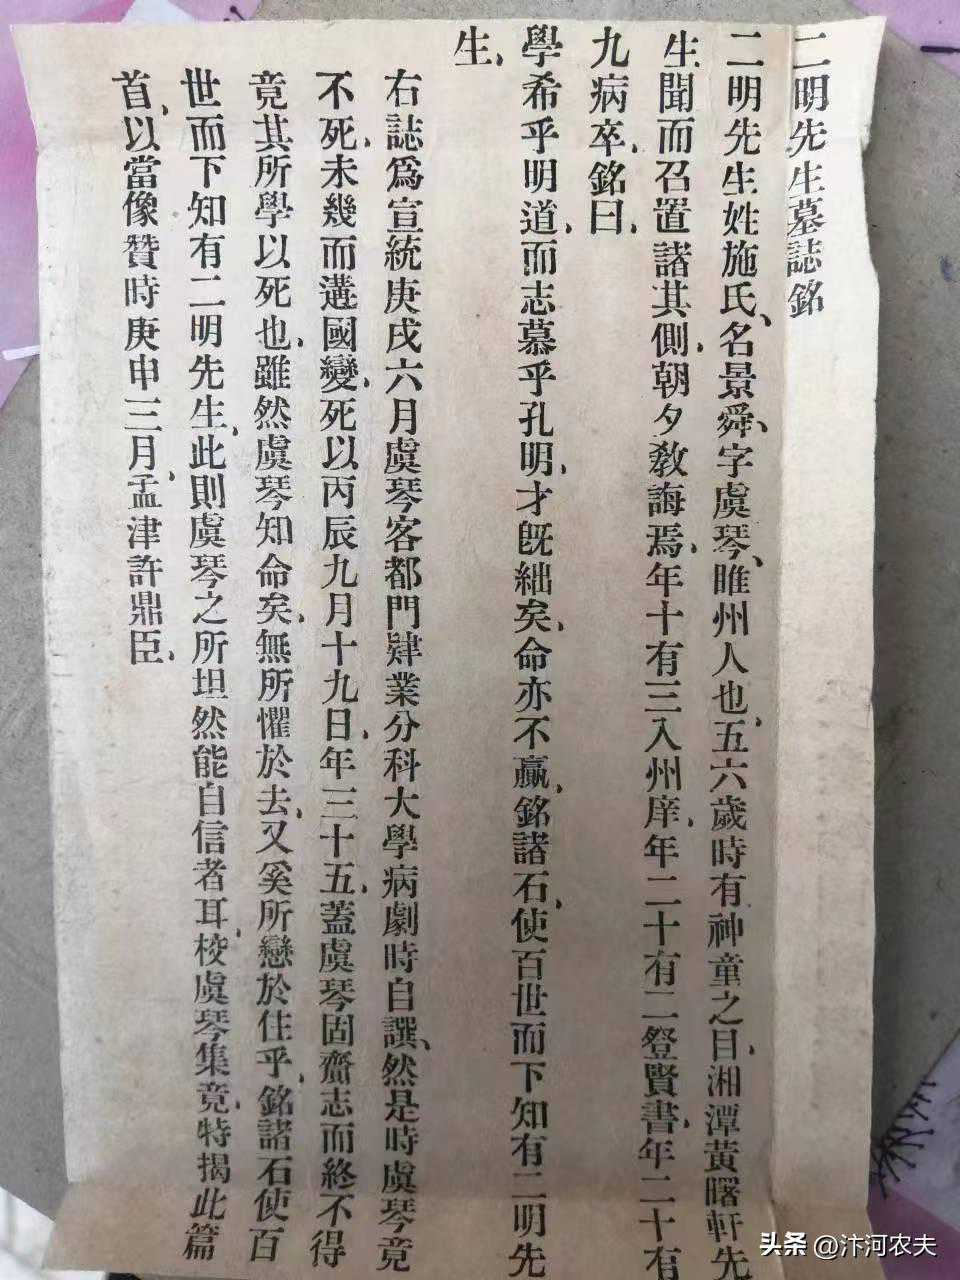 二明先生墓誌銘
二明先生姓施氏、名景舜、字虞琴、睢州人也、五六歲時有神童之目、湘潭黃曙軒先
生聞而召置諸其側、朝夕教誨焉、年十有三入州庠、年二十有二登賢書、年二十有
九病卒、銘曰、
學希乎明道、而志慕乎孔明、才既絀矣、命亦不贏、銘諸石、使百世而下知有二明先
生、
右誌為宣統庚戌六月虞琴客都門肄業分科大學病劇時自譔、然是時虞琴竟
不死、未幾而遘國變、死以丙辰九月十九日、年三十五、蓋虞琴固齎志而終不得
竟其所學以死也、雖然虞琴知命矣、無所懼於去、又奚所戀於住乎、銘諸石使百
世而下知有二明先生、此則虞琴之所坦然能自信者耳、校虞琴集竟、特揭此篇
首、以當像贊時庚申三月、孟津許鼎臣、
头条 @汴河农夫